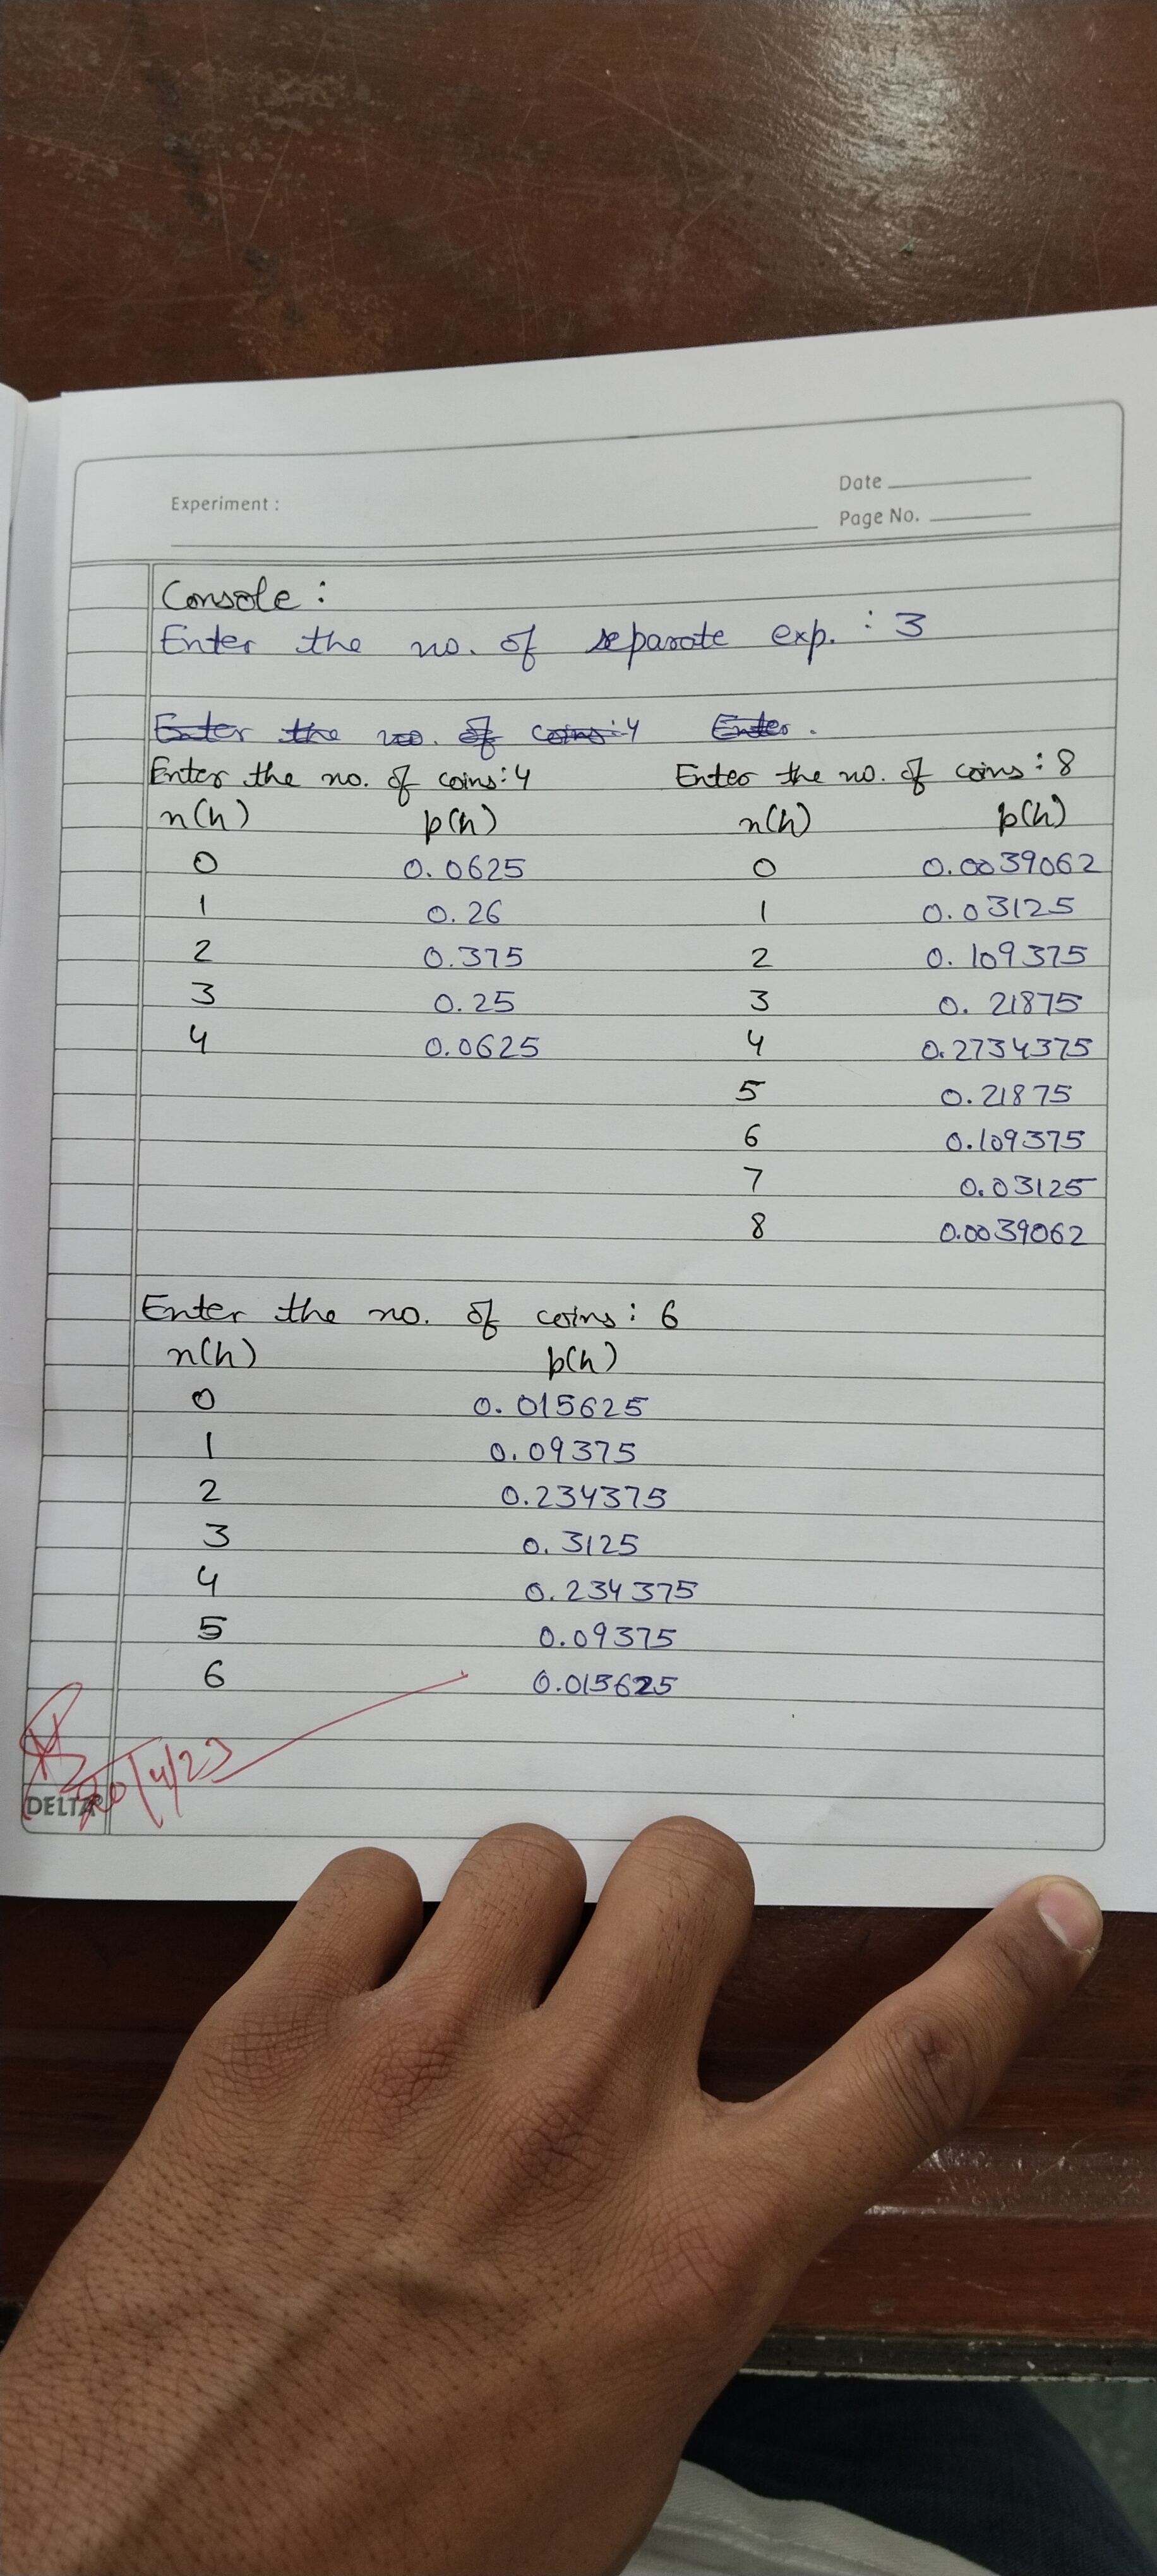 Experiment :
Date
Page No.
Console :
Enter the no. of separate exp. : 3
Enter the no. of coins:4 Enter.
Enter the no. of coins:4 Enter the no. of coins : 8
n(h) p(h) n(h) p(h)
0 0.0625 0 0.0039062
1 0.26 1 0.03125
2 0.375 2 0.109375
3 0.25 3 0.21875
4 0.0625 4 0.2734375
5 0.21875
6 0.109375
7 0.03125
8 0.0039062
Enter the no. of coins : 6
n(h) p(h)
0 0.015625
1 0.09375
2 0.234375
3 0.3125
4 0.234375
5 0.09375
6 0.015625
20/4/23
DELTA